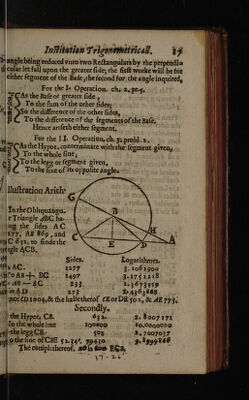 Institution Trigonometricall. 17
angle being reduced unto two Rectangulars by the perpendi
cular let fall upon the greater side; the first worke will be for
either segment of the Base, the second for the angle inquired,
For the I. Operation. ch. 2. pr. 5.
As the Base or greater side,
To the sum of the other sides;
So the difference of the other sides,
To the difference of the segments of the Base.
Hence ariseth either segment.
For the II. Operation. ch. 3. probl. 2.
As the Hypot. conterminate with the segment given,
To the whole sine;
So the legg or segment given,
To the sine of its opposite angle.
Illustration Arith
G
B
H
C E D A
In the Obliquangu.
r Triangle ABC ha-
ing the sides AC
1277, AB 865, and
C 632, to finde the
gle ACB.
Sides. Logarithmes.
AC. 1277 3.1061900
AB + BC 1497 3.1752218
AB — BC 233 2.3673559
AD 273 2.4363888
nce CD 1004, & the halfe thereof CE or DE 502, & AE 775.
Secondly.
the Hypot. CB. 632. 2.8007171
To the whole sine 100000 10.0000000
the legg CE 502 2.7007037
to the sine of CBE 52. 34'. 79430 9.8999866
The complı thereof,
37. 26